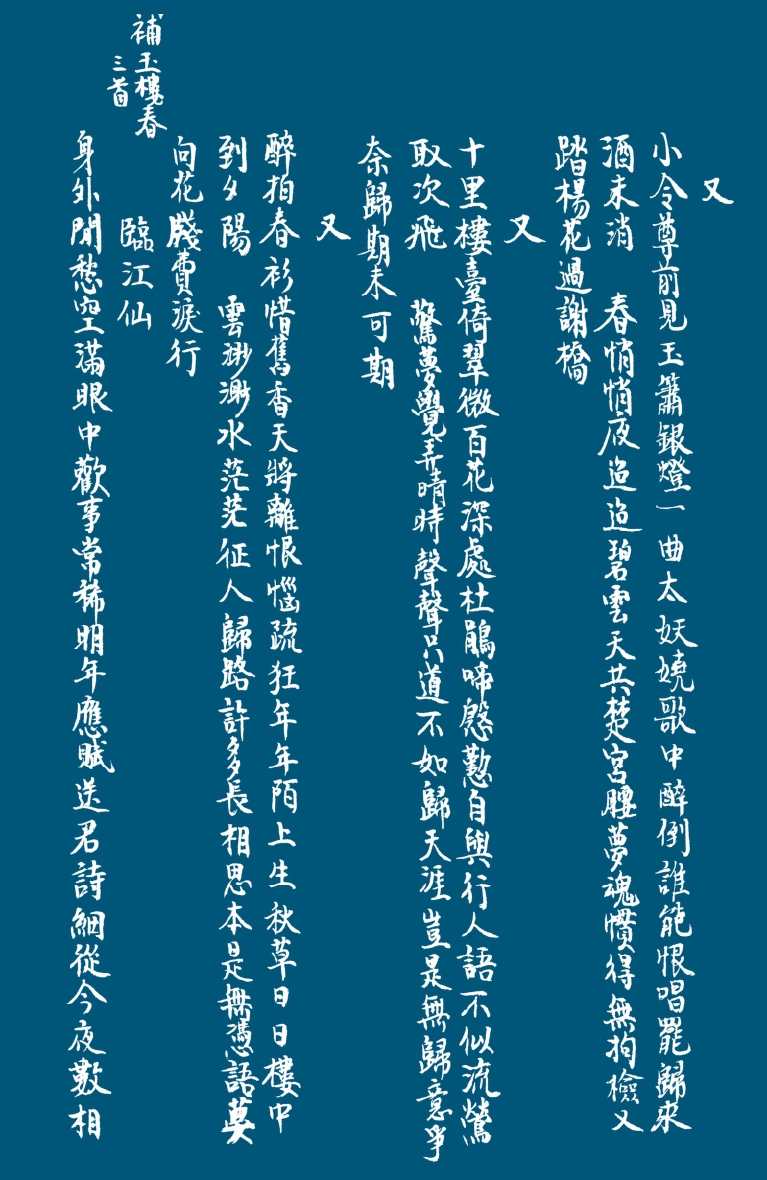 又
小令尊前見玉簫銀燈一曲太妖嬈歌中醉倒誰能恨唱罷歸來
酒未消　春悄悄夜迢迢碧雲天共楚宮腰夢魂慣得無拘檢又
踏楊花過謝橋
又
十里樓臺倚翠微百花深處杜鵑啼慇懃自與行人語不似流鶯
取次飛　驚夢覺弄晴時聲聲只道不如歸天涯豈是無歸意爭
奈歸期未可期
又
醉拍春衫惜舊香天將離恨惱疏狂年年陌上生秋草日日樓中
到夕陽　雲渺渺水茫茫征人歸路許多長相思本是無憑語莫
向花牋費淚行
臨江仙
身外閒愁空滿眼中歡事常稀明年應賦送君詩細從今夜數相
補玉樓春
三首